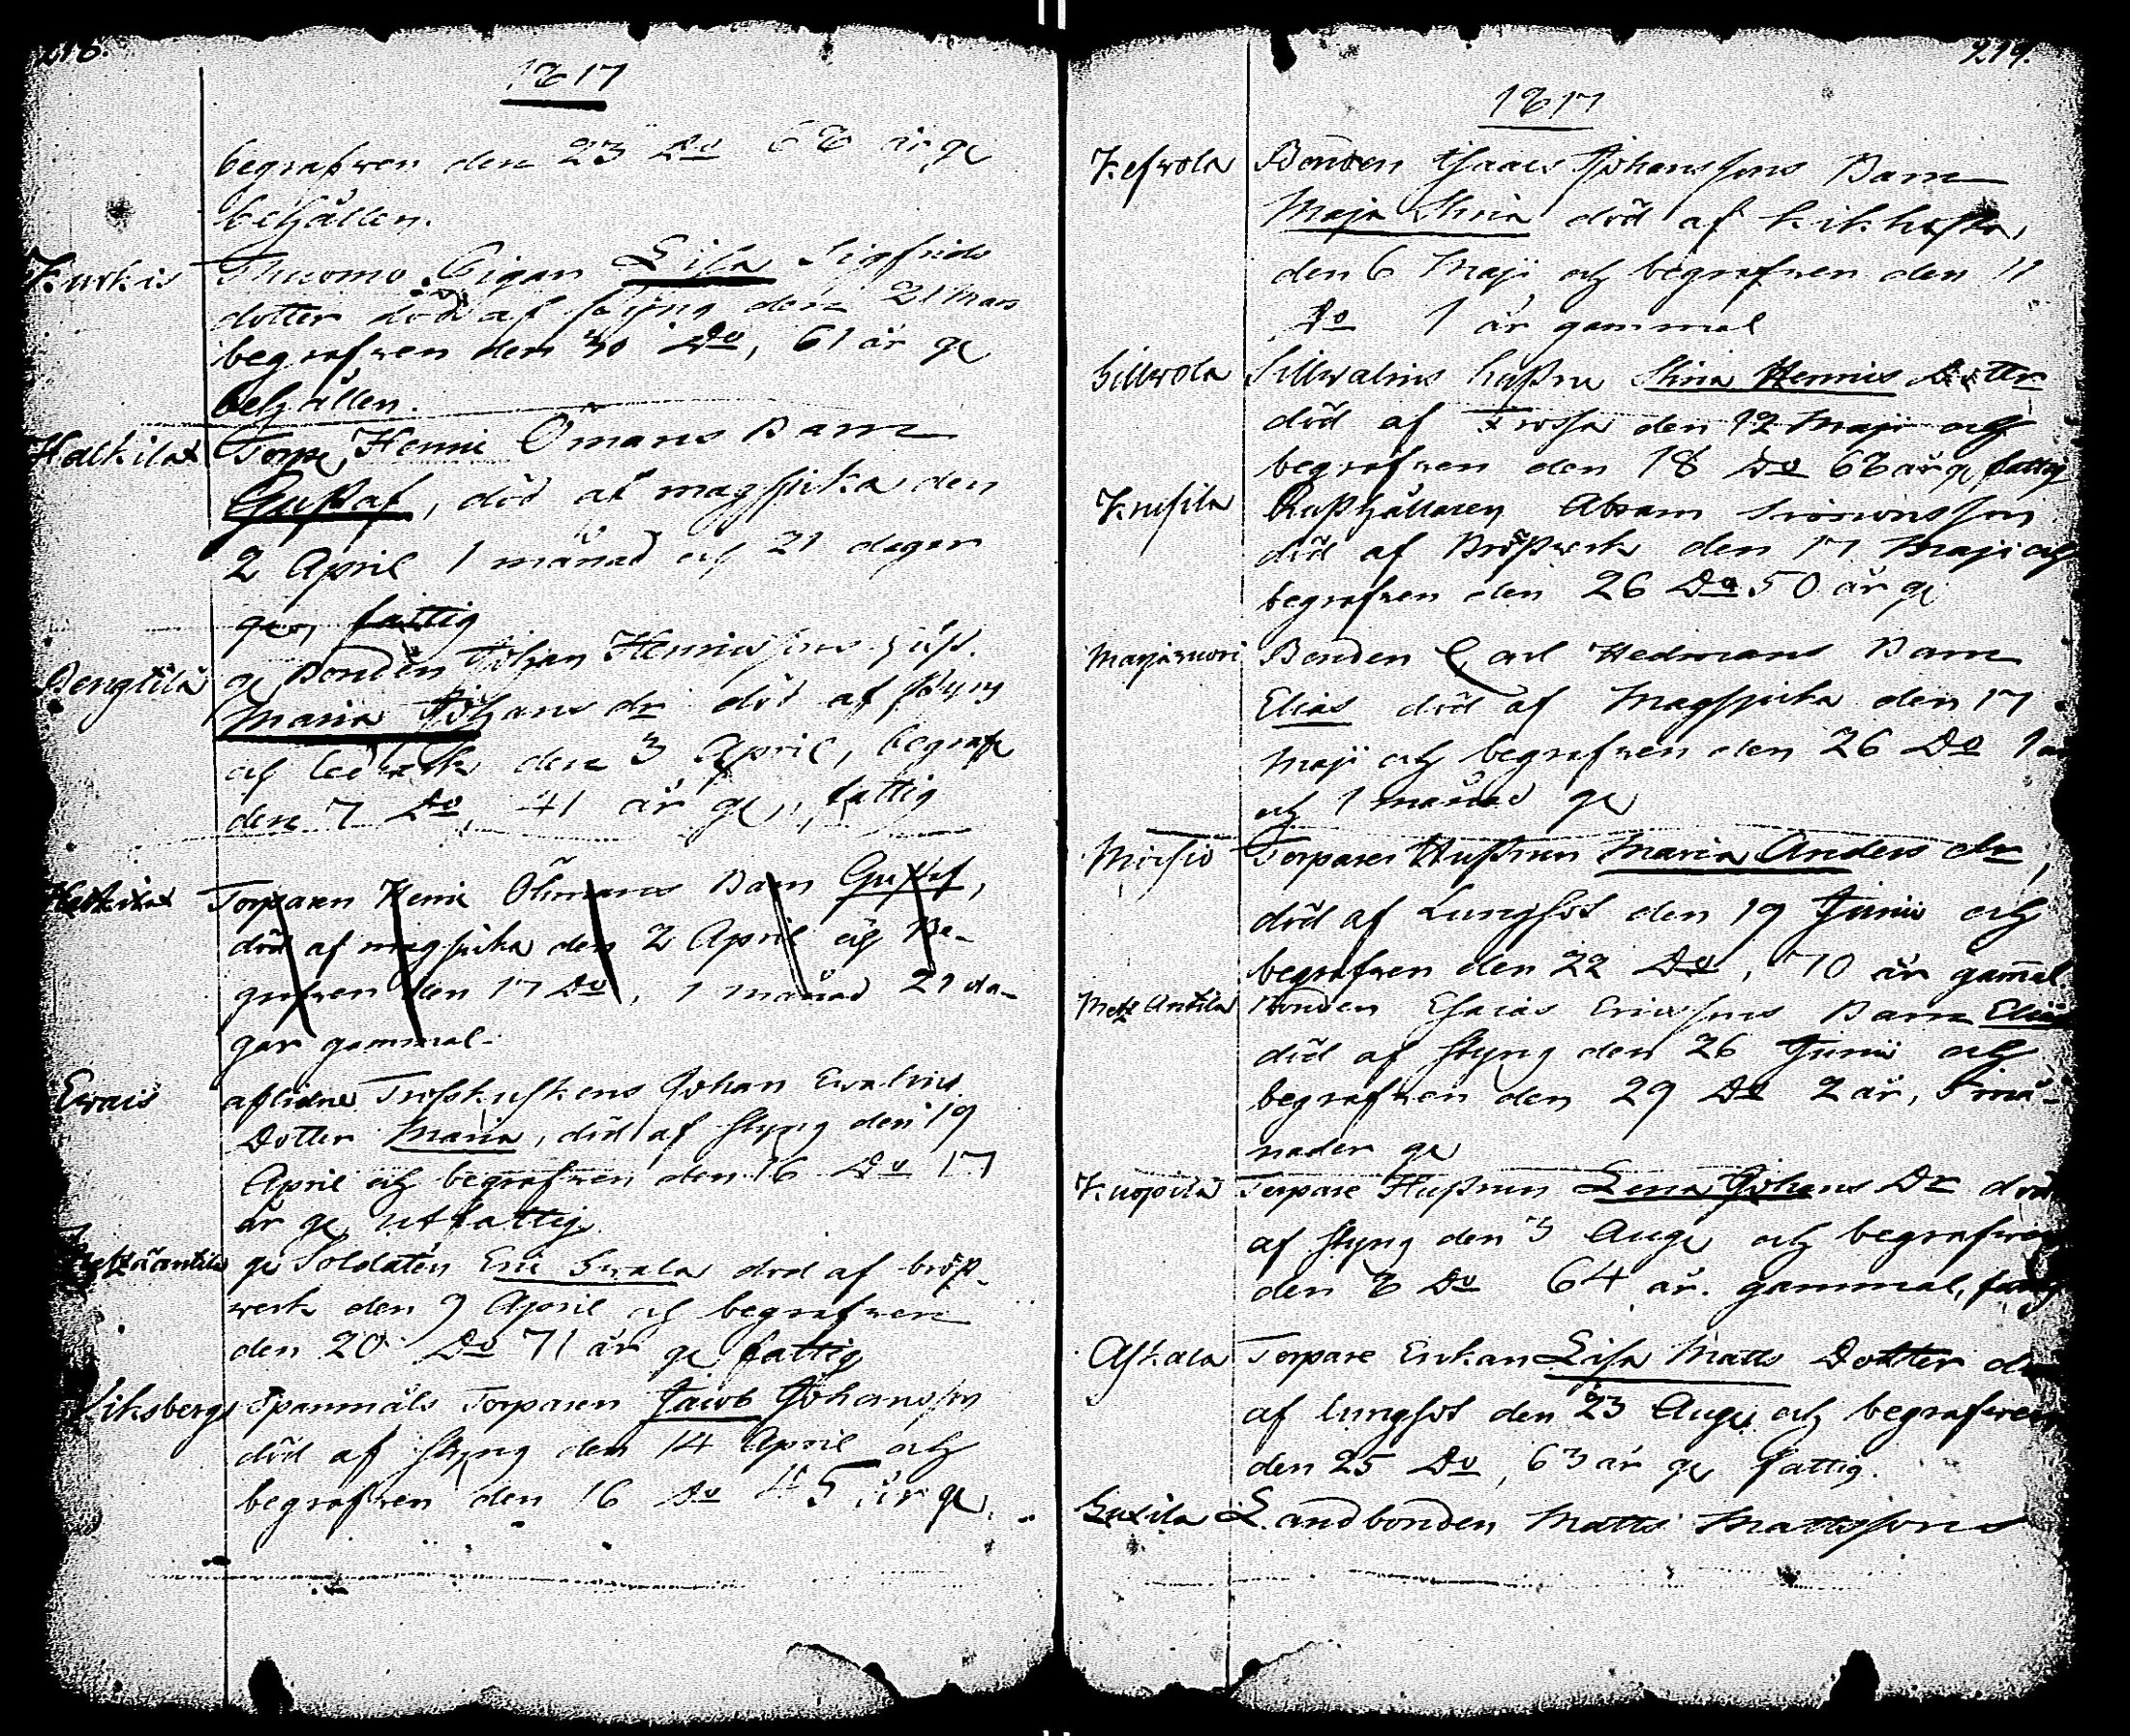 218.
1817
begrafven den 23 Do 68 år gl
behållen.
Kurkis Thuomo Pigan Lisa Sigfrids
dotter död af styng den 21 Mars
begrafven den 30 Do, 61 år gl
behållen.
Halkilax Torpr Henric Ömans Barn
Gustaf, död af magsjuka den
2 April 1 månad och 21 dagar
gl, fattig
Bengtilä gl Bonden Johan Henricssons Hust.
Maria Johans dr död af styng
och ledverk den 3 April, begrafv
den 7 Do, 41 år gl, fattig
Halkilax Torparen Henric Öhmans Barn Gustaf,
död af magsjuka den 2 April och Be-
grafven den 17 Do, 1 månad 21 da-
gar gammal.
Ewais aflidne Trosskuskens Johan Ewalins
Dotter Maria, död af styng den 19
April och begrafven den 16 Do 17
år gl utfattig
Metzäantila gl Soldaten Eric Swala död af bröst-
werk den 9 April och begrafven
den 20 Do 71 år gl fattig
Viksberg Spanmåls Torparen Jacob Johansson
död af styng den 14 April och
begrafven den 16 Do 45 år gl.
219.
1817
Kefvola Bonden Isaacs Johanssons Barn
Maja Stina död af kikhosta
den 6 Maji och begrafven den 11
Do 1 år gammal
Sillvola Sillvalins hustru Stina Henrics Dotter
död af Frossa den 12 Maji och
begrafven den 18 Do 68 år gl fattig
Krusila Rusthållaren Abram Simonsson
död af Bröstverk den 17 Maji och
begrafven den 26 Do 50 år gl
Marjavuori Bonden Carl Hedmans Barn
Elias död af Magsjuka den 17
Maji och begrafven den 26 Do 1 år
och 1 månad gl
Moisio Torpare Hustrun Maria Anders dr,
död af Lungsot den 19 Junii och
begrafven den 22 Do, 70 år gammal
Metz Antila Bonden Esaias Ericssons Barn Elias
död af styng den 26 Junii och
begrafven den 29 Do 2 år, 5 må-
nader gl
Kuopila Torpare Hustrun Lena Johans Dr död
af styng den 3 Aug och begrafven
den 8 Do 64 år gammal, fattig
Askala Torpare Enkan Lisa Matts Dotter död
af lungsot den 23 Aug och begrafven
den 25 Do, 63 år gl fattig.
Suxila Landbonden Matts Mattssons